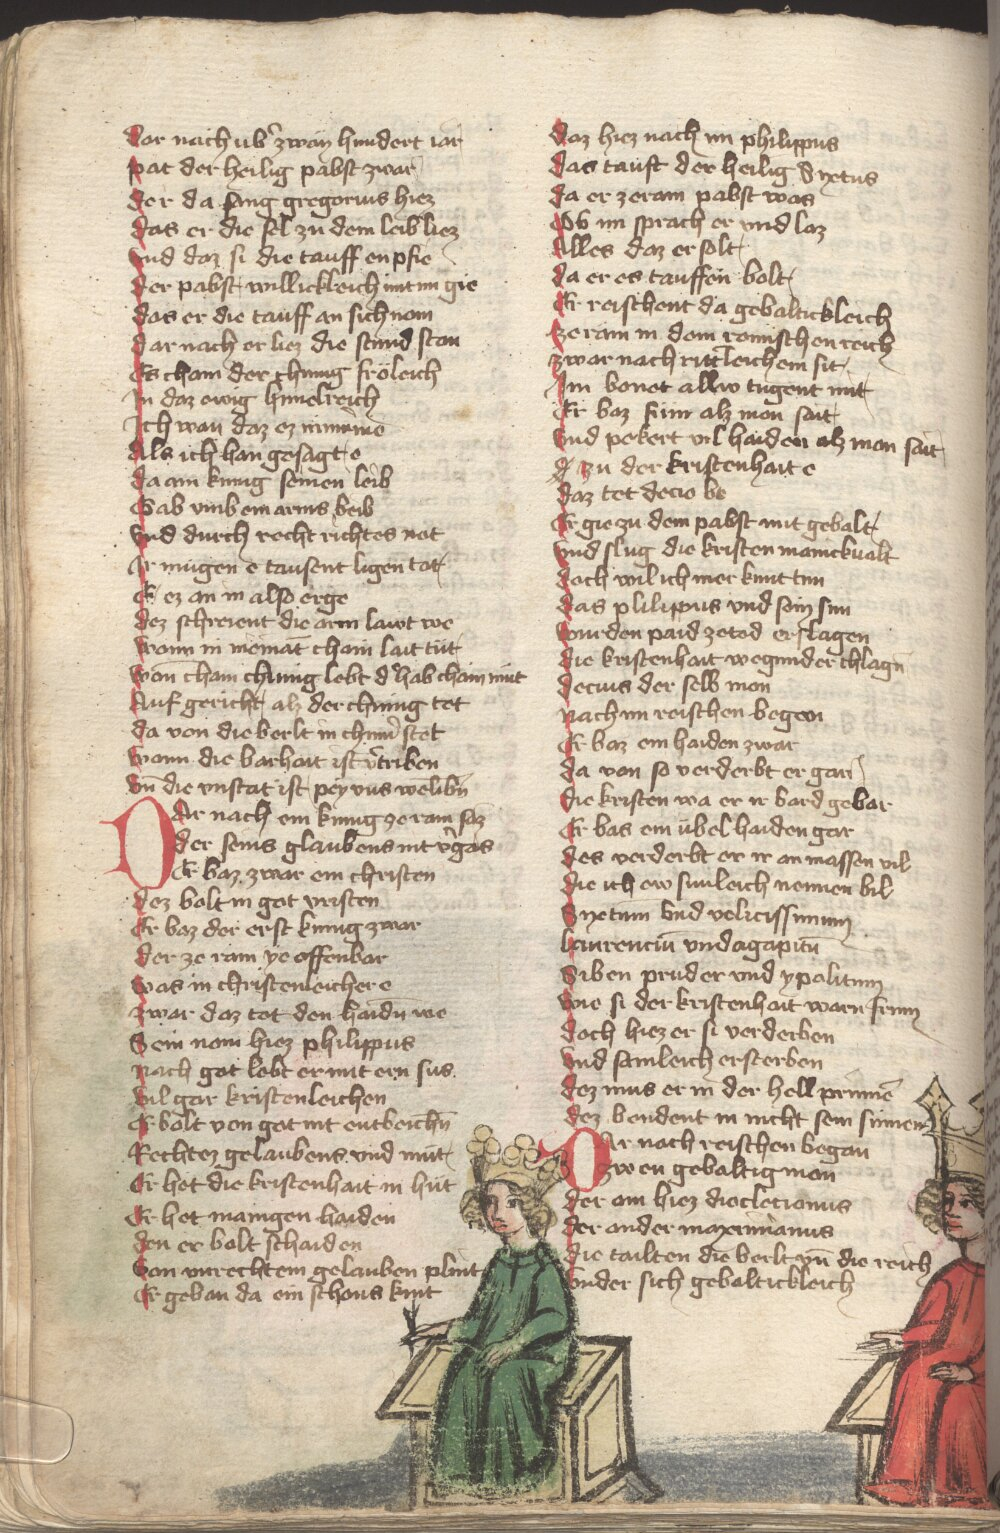 Dar nach ub̾ zway hundert iar
pat der heilig pabst zwar
der da sang gregorius hiez
das er die sel zu dem leib liez
vnd daz si die tauff enpfie
der pabst willickleich mit im gie
das er die tauff an sich nom
dar nach er liez die stund stan
Es cham der chunig frőleich
In daz ewig himelreich
Ich wan daz ez nimm̾me
Als ich han gesagt e
da ain kunig seinen leib
Gab vmb ein arms beib
vnd durch recht richtes not
Ir mugen e tausent ligen tot
E ez an in also erge
dez schreient die arm lawt we
wann in niemāt chain lait tut
wan̄ chain chunig lebt d̾ hab chain mut
Auf gericht alz der chunig tet
da von die berlt in chum̾ stet
wann die barhait ist v̾triben
vn̄ die vnstat ist pey vns welibn̄
DAr nach ein kunig ze ram saz
der seins glaubens nit v̾gas
Er baz zwar ein christen
dez bolt in got vristen
Er baz der erst kunig zwar
der ze ram ye offenbar
was in christenleicher e
zwar daz tet den haidn̄ we
Sein nam hiez philippus
nach got lebt er mit ern sus
vil gar kristenleichen
Er bolt von got nit entbeichn̄
Rechtez gelaubens vnd mut
Er het die kristenhait in hut
Er het mangen haiden
den er bolt schaiden
Von vnrechtem gelauben plint
Er geban da ein schons kint
daz hiez nach im philippus
das tauft der heilig Sixtus
da er ze ram pabst was
Ob im sprach er vnd laz
Alles daz er solt
da er es tauffen bolt
Er reischent da gebaltickleich
ze ram in dem romischen reich
zwar nach ritt̾leichem sit
Im bonet allw tugent mit
Er baz frum alz man sait
vnd pekert vil haiden alz man sait
zu der kristenhait e
daz tet decio be
Er gie zu dem pabst mit gebalt
vnd slug die kristen manickualt
doch wil ich mer kunt tun
das plilippus vnd sein sun
wurden paid ze tod erslagen
die kristenhait wegunder chlagn̄
decius der selb man
nach im reischen began
Er baz ein haiden zwar
da von so verderbt er gar
die kristen wa er ir bard gebar
Er bas ein übel haiden gar
des verderbt er ir an massen vil
die ich ew sunleich nennen bil
Sixtum vnd velicissimum
laurenciū vnd agapitū
Siben pruder vnd ypolitum
wie si der kristenhait warn frum
doch hiez er si verderben
vnd samleich ersterben
dez mus er in der hell prinnē
dez bendent in nicht sein sinnen
DAr nach reischen began
zwen gebaltig man
der ain hiez diocletianus
der ander maximianus
die tailten die berlt vn̄ die reich
vnder sich gebaltickleich